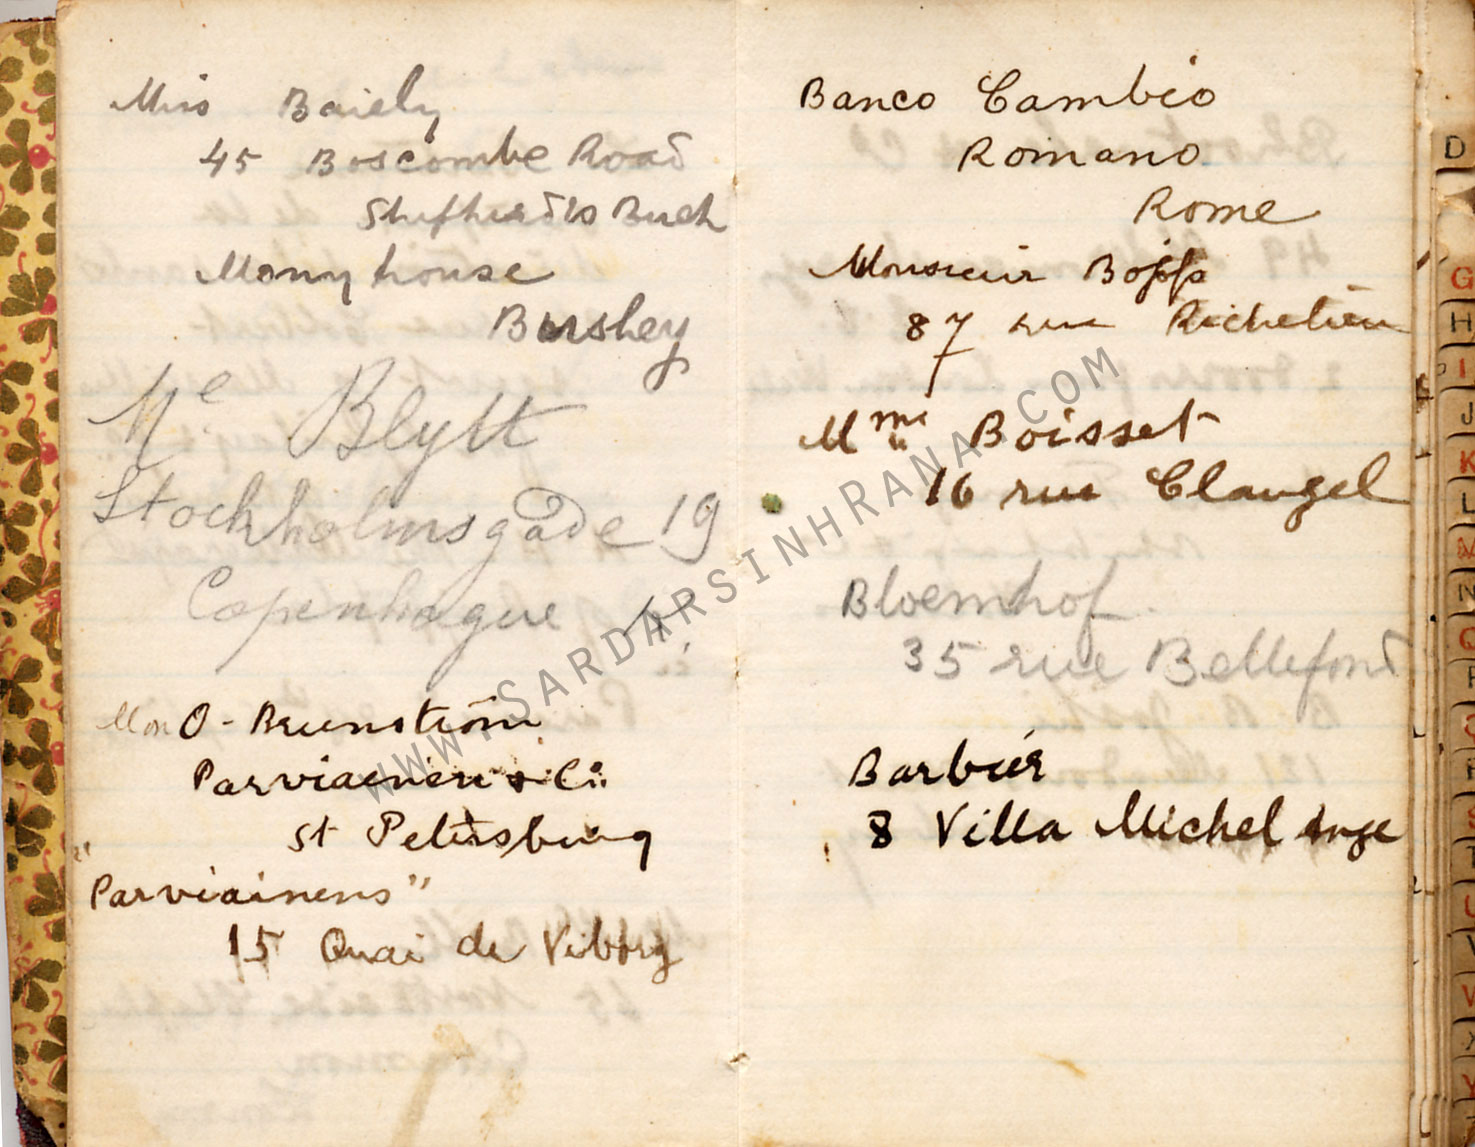 Miss Baiely
45 Boscombe Road
Shepherd's Buch
Mony house
Burshey
Me Blytt
Stockholmsgade 19
Copenhague K.
Mon O - Brunström
Parviainen & Co.
St Petersburg
"Parviainens"
15 Quai de Viborg
Banco Cambio
Romano
Rome
Monsieur Bopp
87 rue Richelieu
Mme Boisset
16 rue Clauzel
Bloemhof.
35 rue Bellefond
Barbier
8 Villa Michel Ange
D
G
H
I
J
K
L
M
N
Q
P
S
U
V
X
WWW.SARDARSINHRANA.COM